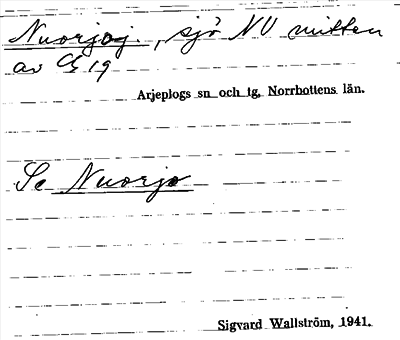 Nuorjoj, sjö NV mitten
av G 19
Arjeplogs sn och tg, Norrbottens län.
Se Nuorjo
Sigvard Wallström, 1941.